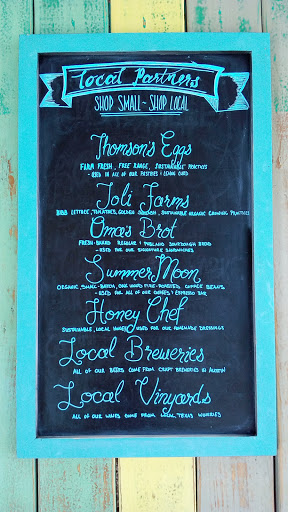 Local Partners
SHOP SMALL - SHOP LOCAL
Thomson's Eggs
FARM FRESH, FREE RANGE, SUSTAINABLE PRACTICES
- USED IN ALL OF OUR PASTRIES & LEMON CURD
Joli Farms
BIBB LETTUCE, TOMATOES, GOLDEN SUSTAINABLE ORGANIC GROWING PRACTICES
Oma's Brot
FRESH-BAKED REGULAR & SOURDOUGH BREAD
- USED FOR OUR SIGNATURE SANDWICHES
Summer Moon
ORGANIC, SMALL-BATCH, OAK WOOD FIRE-ROASTED, COFFEE BEANS
- USED FOR ALL OF OUR COFFEES & ESPRESSO BAR
Honey Chef
SUSTAINABLE, LOCAL HONEY USED FOR OUR HOMEMADE DRESSINGS
Local Breweries
ALL OF OUR BEERS COME FROM CRAFT BREWERIES IN AUSTIN
Local Vinyards
ALL OF OUR WINES COME FROM LOCAL, TEXAS WINERIES